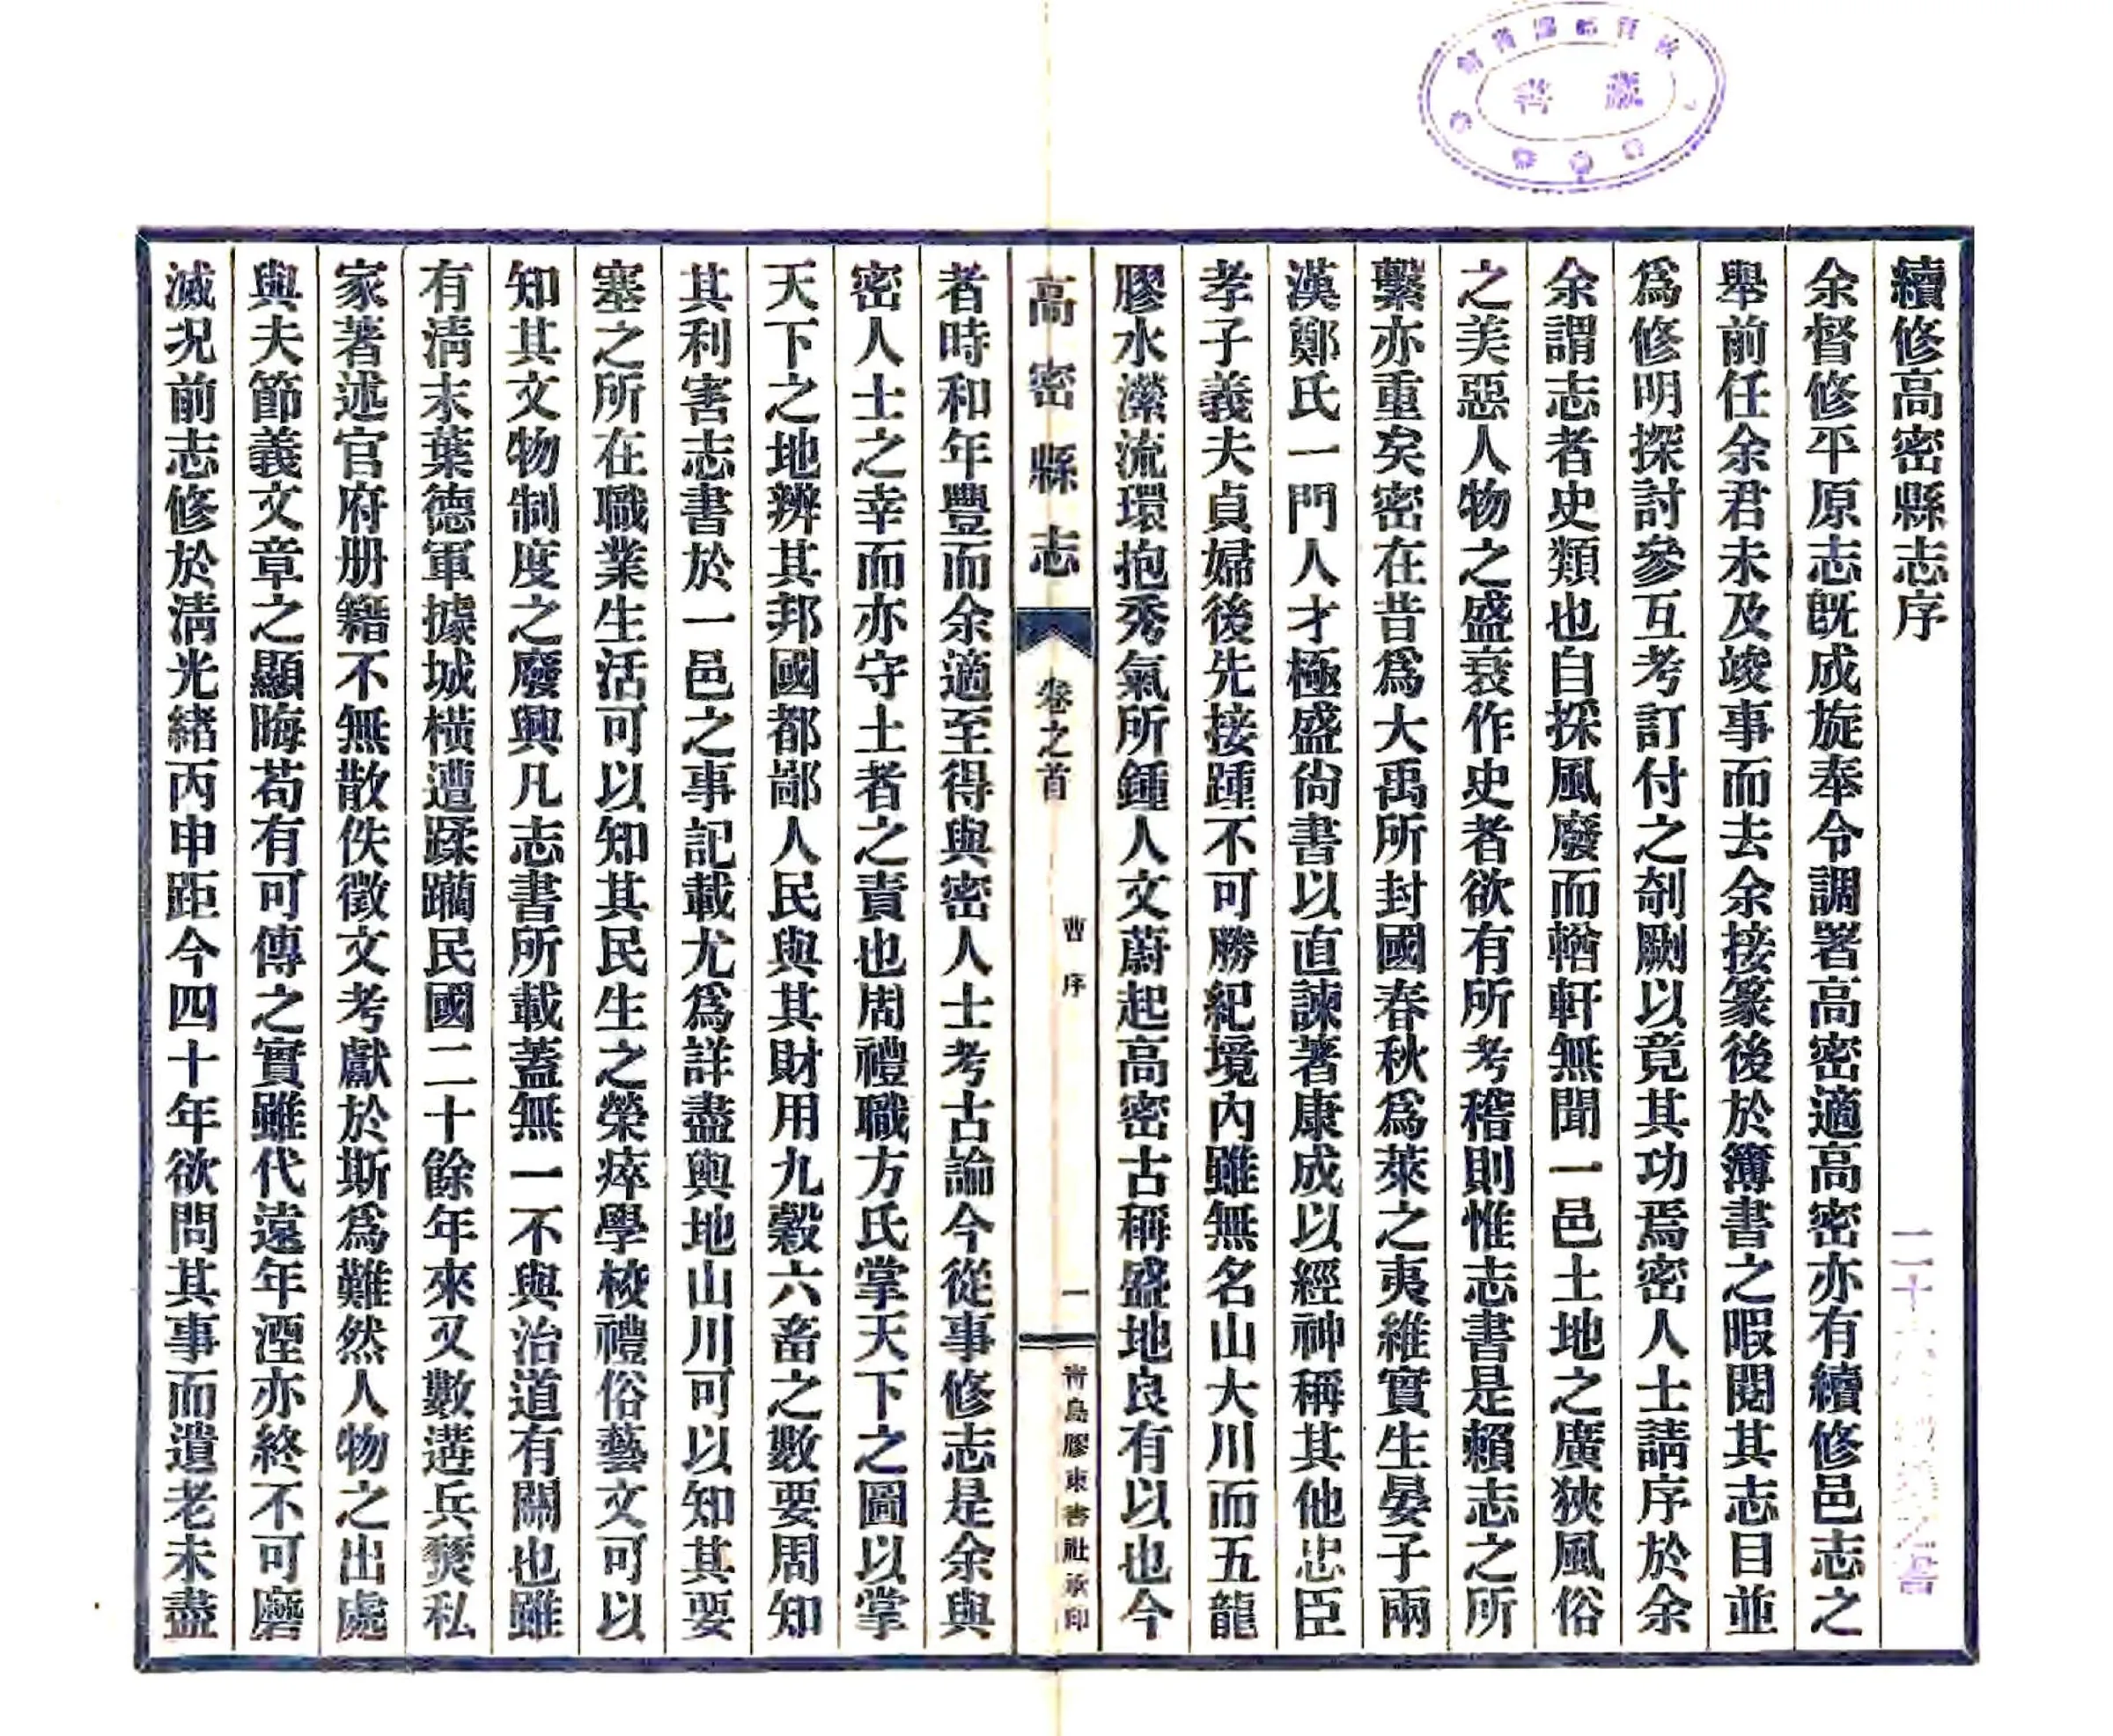 續修高密縣志序
余督修平原志旣成旋奉令調署高密適高密亦有續修邑志之
舉前任余君未及竣事而去余接篆後於簿書之暇閱其志目並
爲修明探討參互考訂付之剞劂以竟其功焉密人士請序於余
余謂志者史類也自採風廢而輶軒無聞一邑土地之廣狹風俗
之美惡人物之盛衰作史者欲有所考稽則惟志書是賴志之所
繫亦重矣密在昔爲大禹所封國春秋爲萊之夷維實生晏子兩
漢鄭氏一門人才極盛尙書以直諫著康成以經神稱其他忠臣
孝子義夫貞婦後先接踵不可勝紀境內雖無名山大川而五龍
膠水瀠流環抱秀氣所鍾人文蔚起高密古稱盛地良有以也今
高密縣志
卷之首
曹序
一
靑島膠東書社承印
者時和年豐而余適至得與密人士考古論今從事修志是余與
密人士之幸而亦守土者之責也周禮職方氏掌天下之圖以掌
天下之地辨其邦國都鄙人民與其財用九穀六畜之數要周知
其利害志書於一邑之事記載尤爲詳盡輿地山川可以知其要
塞之所在職業生活可以知其民生之榮瘁學校禮俗藝文可以
知其文物制度之廢興凡志書所載蓋無一不與治道有關也雖
有淸末葉德軍據城橫遭蹂躪民國二十餘年來又數遘兵燹私
家著述官府册籍不無散佚徵文考獻於斯爲難然人物之出處
與夫節義文章之顯晦苟有可傳之實雖代遠年湮亦終不可磨
滅况前志修於淸光緒丙申距今四十年欲問其事而遺老未盡